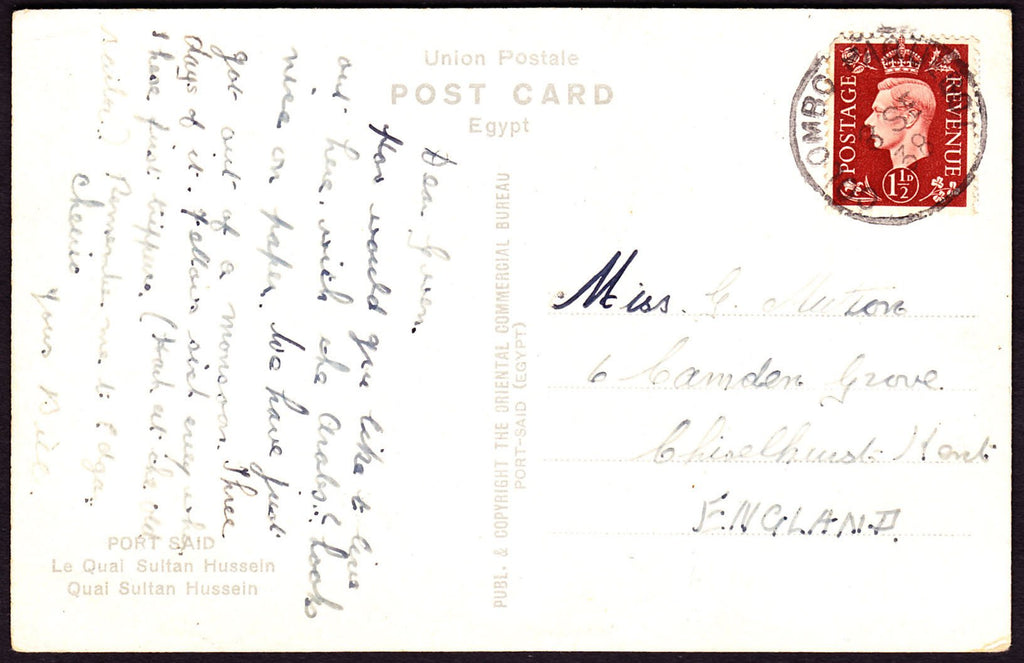 Union Postale
POST CARD
Egypt
Dear Gwen.
How would you like to live
out here with the Arabs? Looks
nice on paper. We have just
got out of a monsoon. Three
days of it. fellows sick every where
I have just
sailor) Remember me to Edgar.
Cheerio
yours Bill
PORT SAID
Le Quai Sultan Hussein
Quai Sultan Hussein
PUBL. & COPYRIGHT THE ORIENTAL COMMERCIAL BUREAU
PORT-SAID (EGYPT)
POSTAGE
REVENUE
1½D
Miss. G.
6 Camden Grove
Chiselhurst Kent
ENGLAND